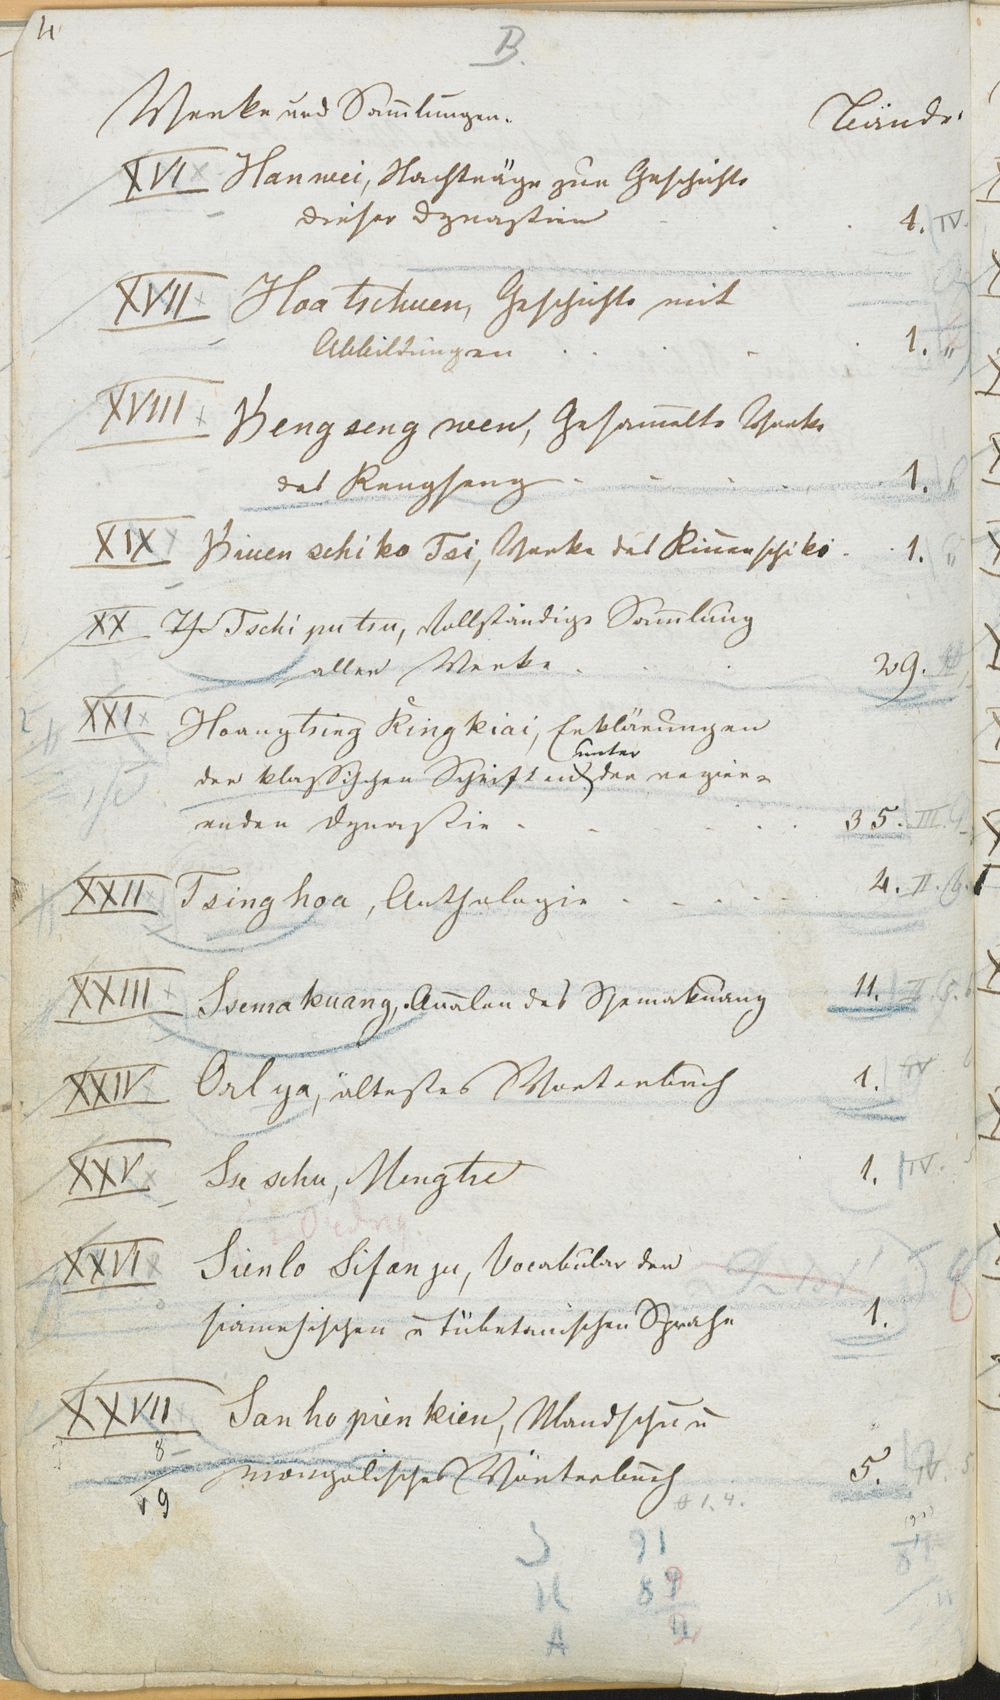 4
B.
Werke und Sam̄lungen.
Bände.
XVI Han wei, Nachträge zur Geschichte
dieser Dynastien . . 1. IV.
XVII Hoa tschuen, Geschichte mit
Abbildungen . . . . 1. "
XVIII Kengseng wen, Gesam̄elte Werke
des Kengseng . . . . 1.
XIX Kiuen schi ko Tsi, Werke des Kiuenschiko . . 1. "
XX Tschi pu tsu, Vollständige Sam̄lung
aller Werke . . . 29.
XXI Hoangtsing Kingkiai, Erklärungen
der klassischen Schriften unter der regier=
enden Dynastie . . . . 35. III.
XXII Tsing hoa, Anthologie . . . . . 4. II.
XXIII Ssema kuang, Annalen des Ssemakuang 11. II.
XXIV Oel ya, ältestes Wörterbuch 1. IV
XXV Sse schu, Mengtse 1. IV.
XXVI Sienlo Sifan yu, Vocabular der
siamesischen u tübetanischen Sprache 1.
XXVII San ho pien kien, Mandschu u
mongolisches Wörterbuch 5. IV
8
19
1. 4.
91